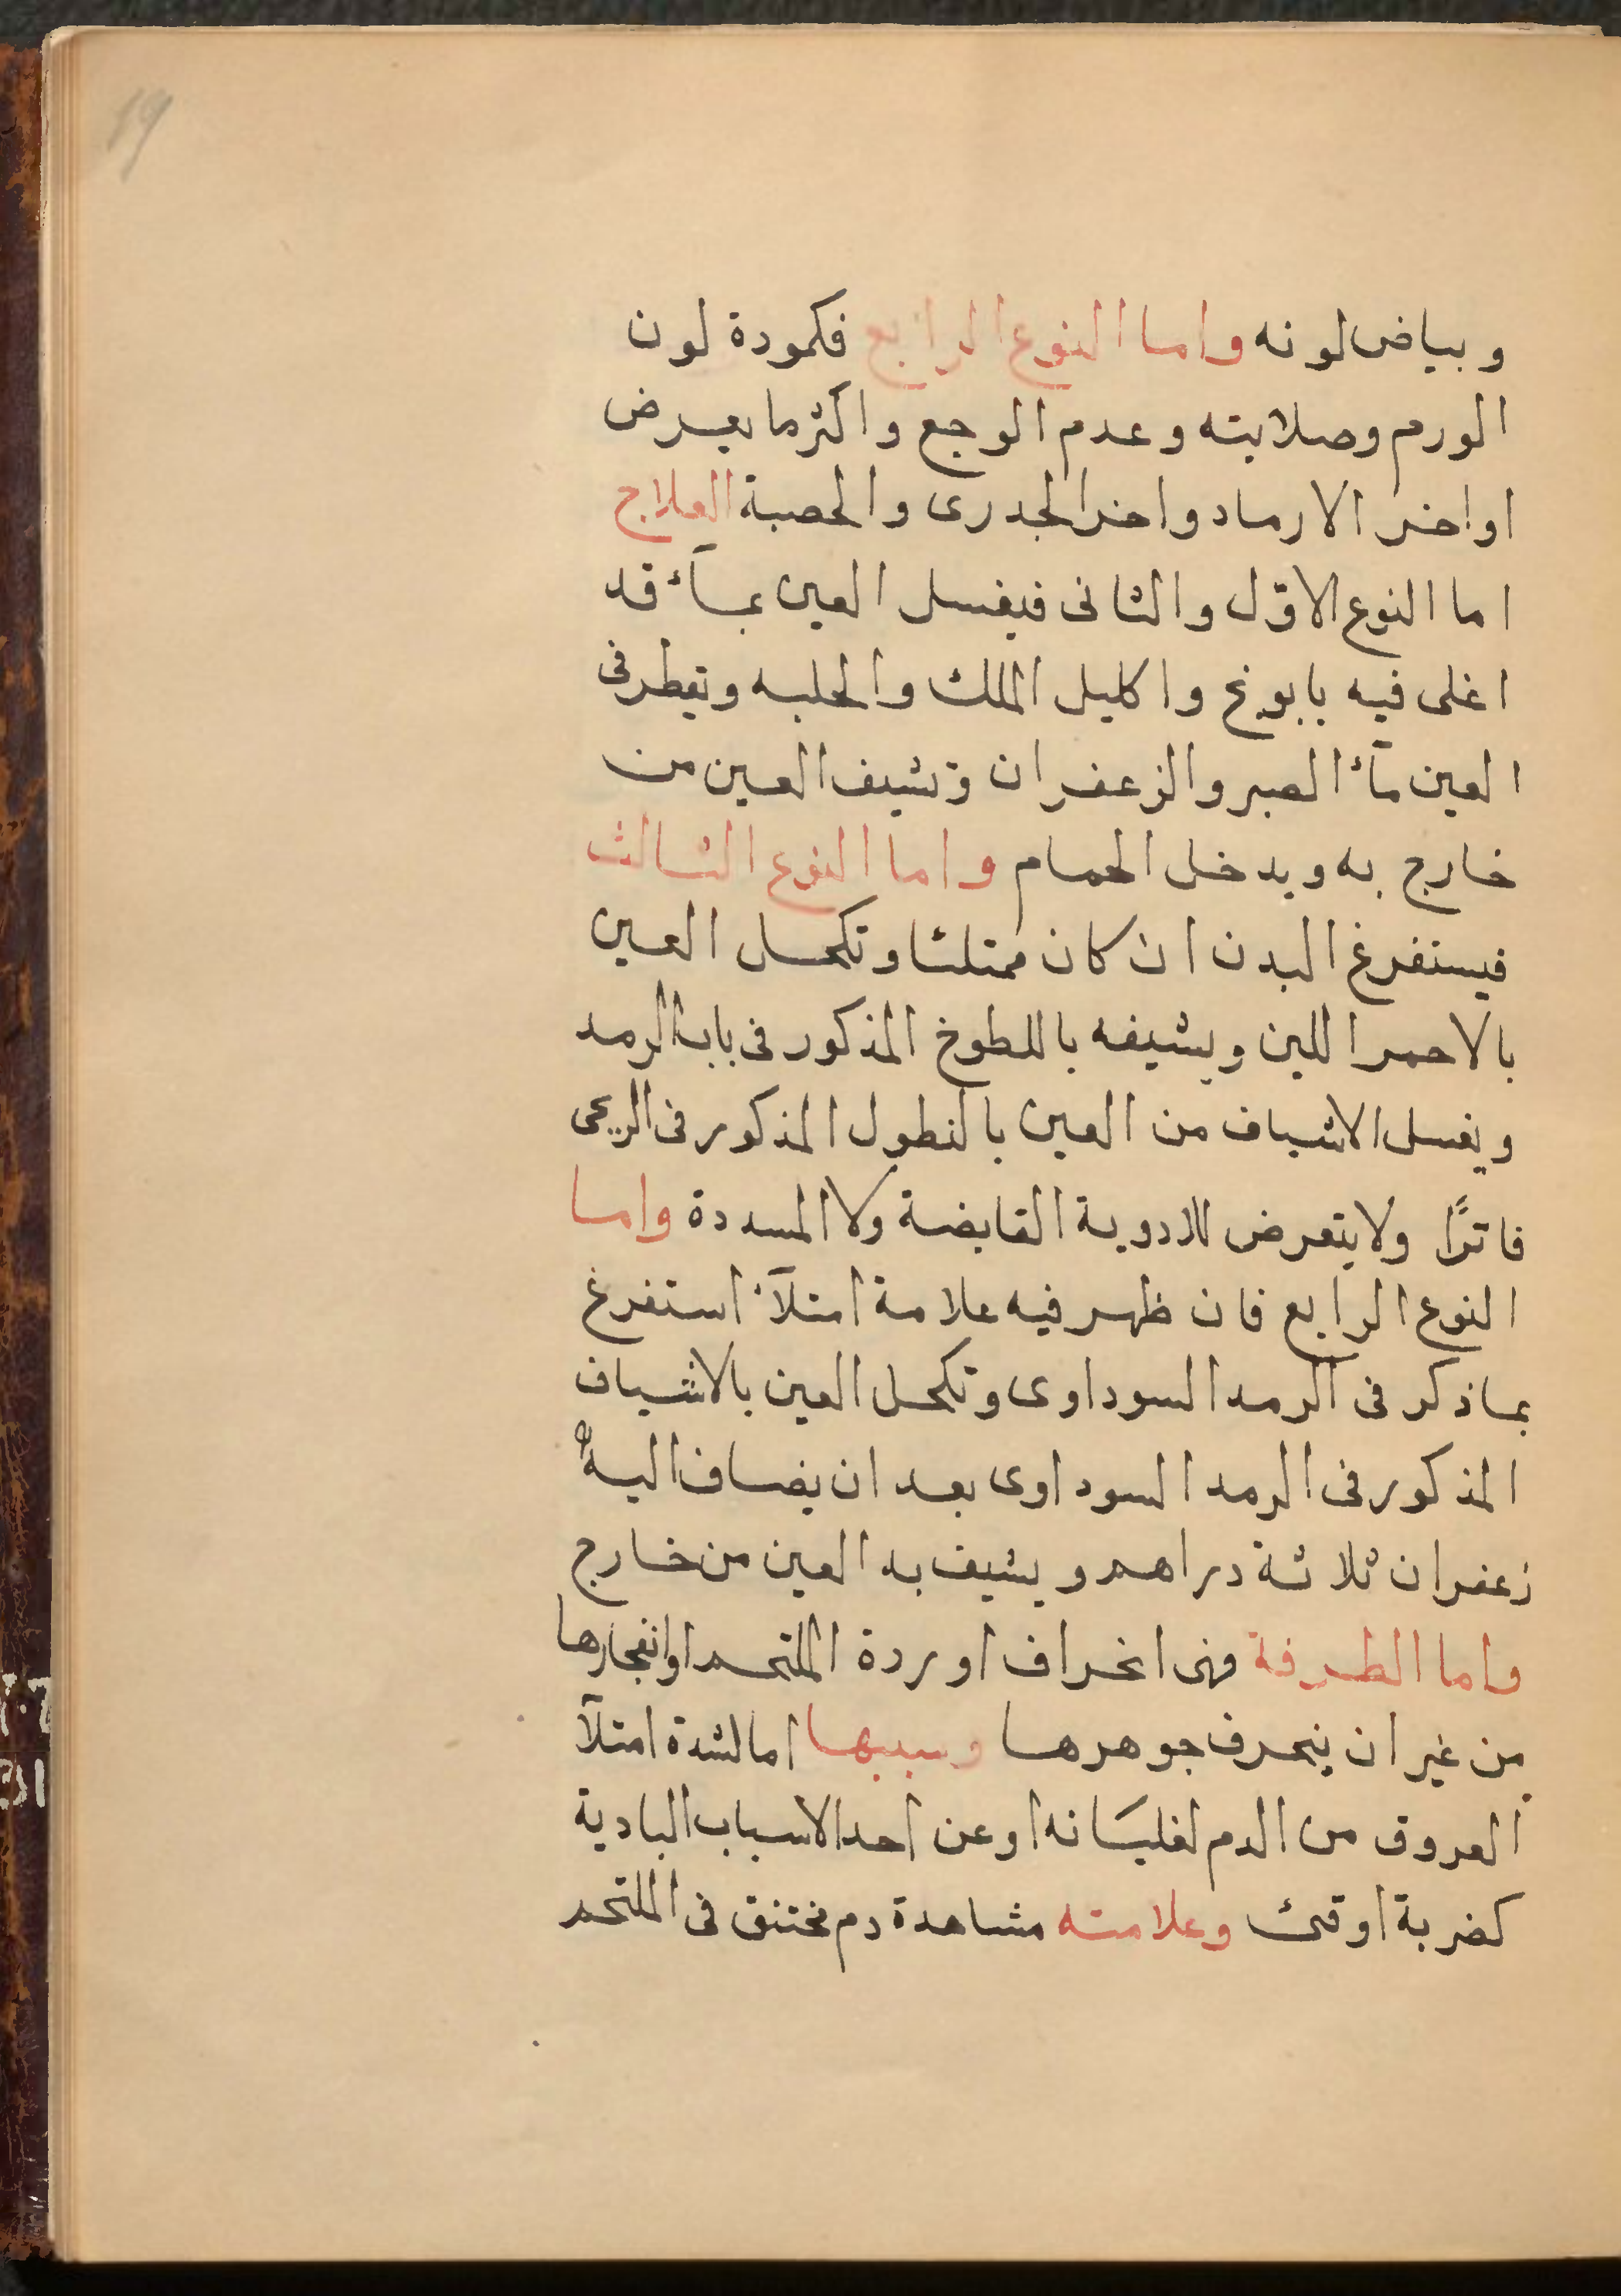 19
وبياض لونه واما النوع الرابع فكمودة لون
الورم وصلابته وعدم الوجع واكثر ما يعرض
اواخر الارماد واخر الجدرى والحصبة العلاج
اما النوع الاوّل والثانى فيغسل العين بمآء قد
اغلى فيه بابونج واكليل الملك والحلبه ويقطر فى
العين مآء الصبر والزعفران وتشيف العين من
خارج به ويدخل الحمام واما النوع الثالث
فيستفرغ البدن ان كان ممتلئا وتكحل العين
بالاحمر اللين ويشيفه باللطوخ المذكور فى باب الرمد
ويغسل الاشياف من العين بالنطول المذكور فى الريحى
فاترًا ولا يتعرض للادوية القابضة ولا المسددة واما
النوع الرابع فان ظهر فيه علامة امتلآء استفرغ
بماذكر فى الرمد السوداوى وتكحل العين بالاشياف
المذكور فى الرمد السوداوى بعد ان يضاف اليه
زعفران ثلاثة دراهم ويشيف به العين من خارج
واما الطرفة فهى انخراف اوردة الملتحم او انفجارها
من غير ان ينحرف جوهرها وسببها اما لشدة امتلآ
العروق من الدم لغليَانه او عن احد الاسباب البادية
كضربة او قئ وعلامته مشاهدة دم مختنق فى الملتحم